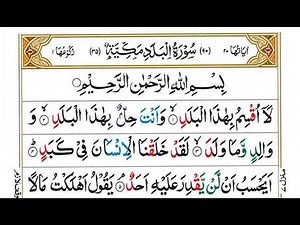 اٰیاتها ٢٠ (٩٠) سُوْرَةُ الْبَلَدِ مَكِّیَّةٌ (٣٥) رُكُوْعُهَا ١
بِسْمِ اللّٰهِ الرَّحْمٰنِ الرَّحِیْمِ
لَاۤ اُقْسِمُ بِهٰذَا الْبَلَدِ ۙ﴿١﴾ وَ اَنْتَ حِلٌّۢ بِهٰذَا الْبَلَدِ ۙ﴿٢﴾ وَ
وَالِدٍ وَّمَا وَلَدَ ۙ﴿٣﴾ لَقَدْ خَلَقْنَا الْاِنْسَانَ فِیْ كَبَدٍ ؕ﴿٤﴾
اَیَحْسَبُ اَنْ لَّنْ یَّقْدِرَ عَلَیْهِ اَحَدٌ ۘ﴿٥﴾ یَقُوْلُ اَهْلَكْتُ مَالًا